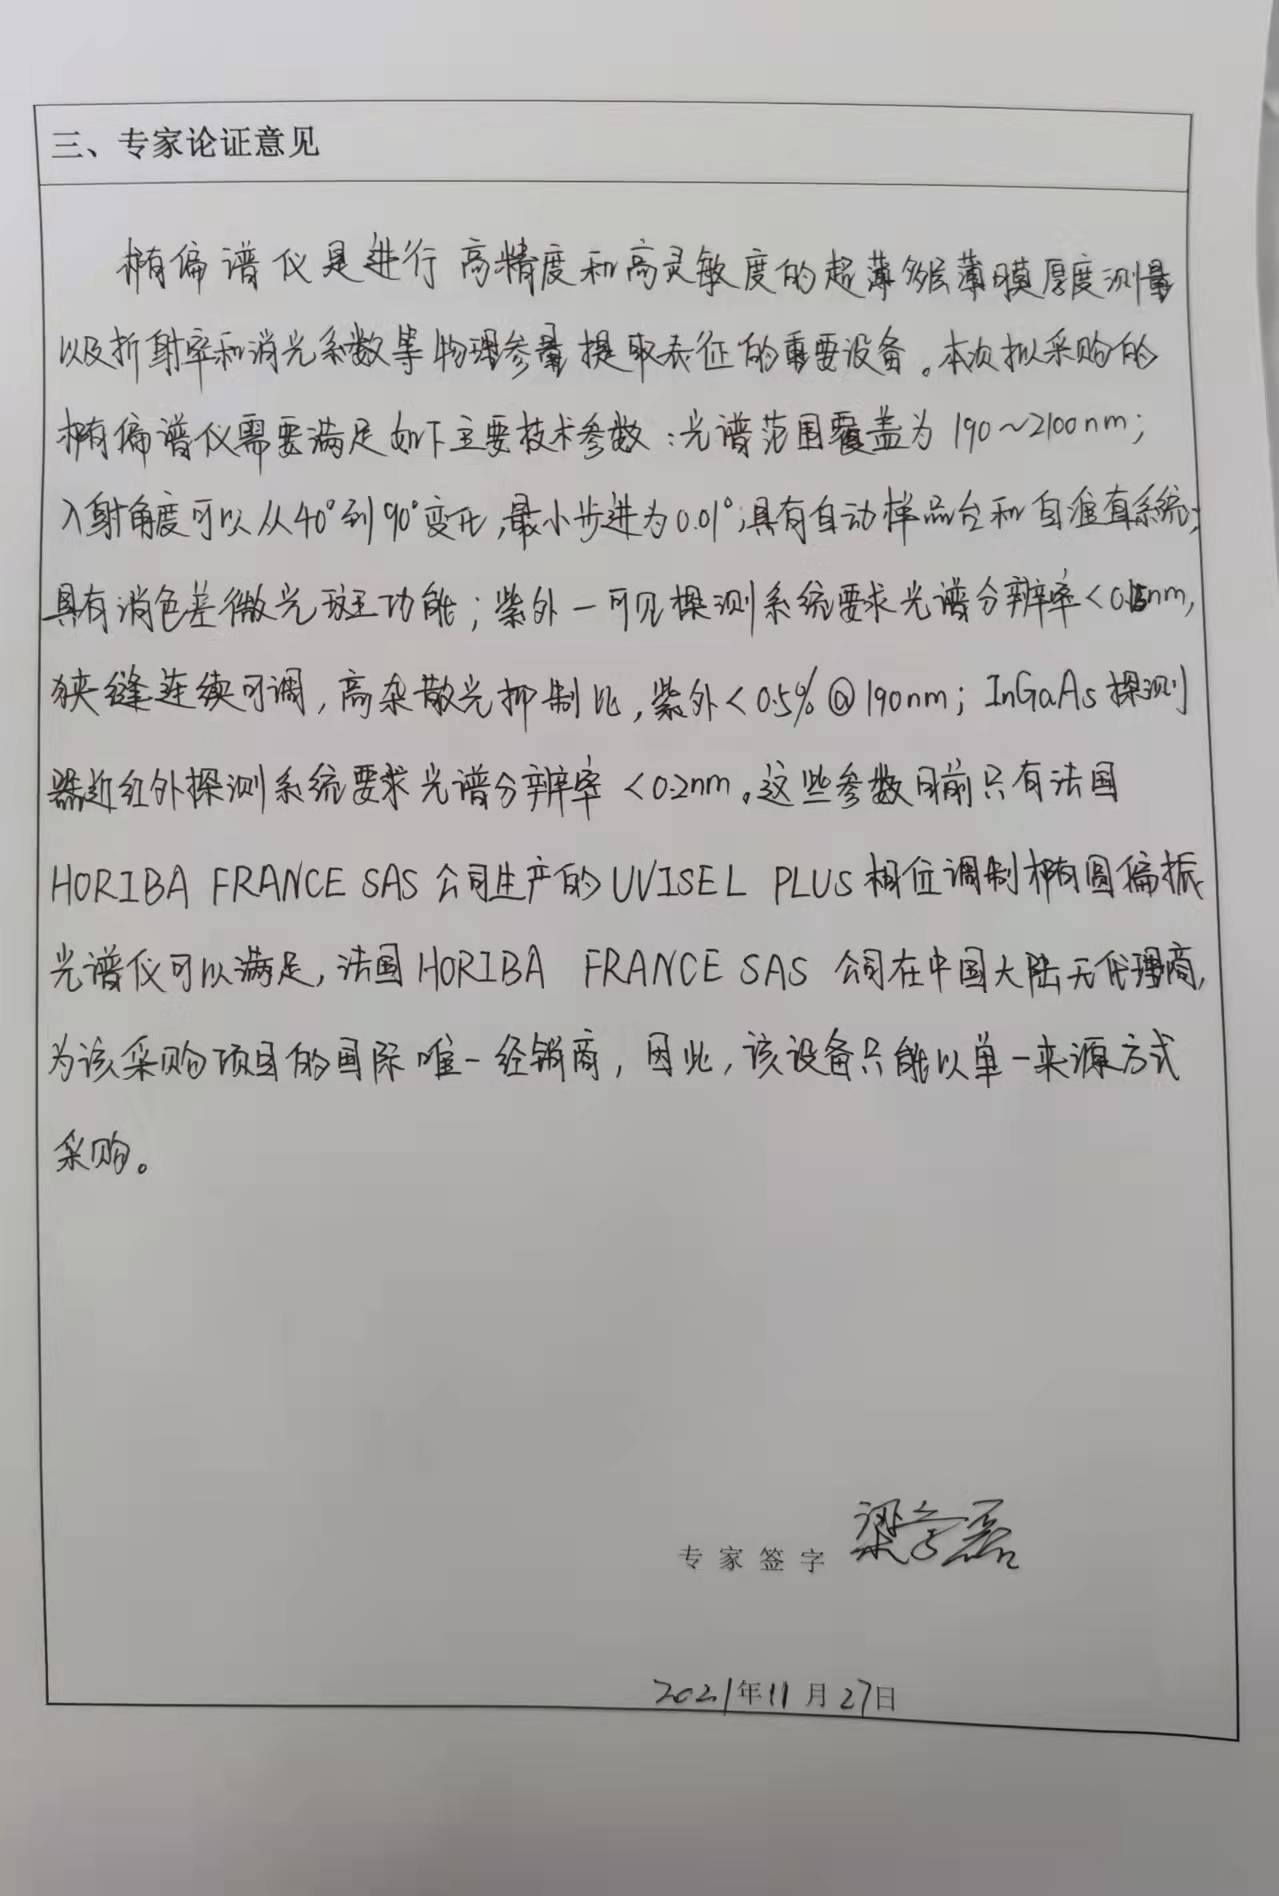 三、专家论证意见
椭偏谱仪是进行高精度和高灵敏度的超薄多层薄膜厚度测量
以及折射率和消光系数等物理参量提取表征的重要设备。本次拟采购的
椭偏谱仪需要满足如下主要技术参数：光谱范围覆盖为190～2100nm；
入射角度可以从40°到90°变化，最小步进为0.01°；具有自动样品台和自准直系统；
具有消色差微光斑功能；紫外－可见探测系统要求光谱分辨率<0.15nm，
狭缝连续可调，高杂散光抑制比，紫外<0.5%@190nm；InGaAs探测
器近红外探测系统要求光谱分辨率<0.2nm。这些参数目前只有法国
HORIBA FRANCE SAS公司生产的UVISEL PLUS相位调制椭圆偏振
光谱仪可以满足，法国HORIBA FRANCE SAS公司在中国大陆无代理商，
为该采购项目的国际唯一经销商，因此，该设备只能以单一来源方式
采购。
专家签字 梁学磊
2021年11月27日